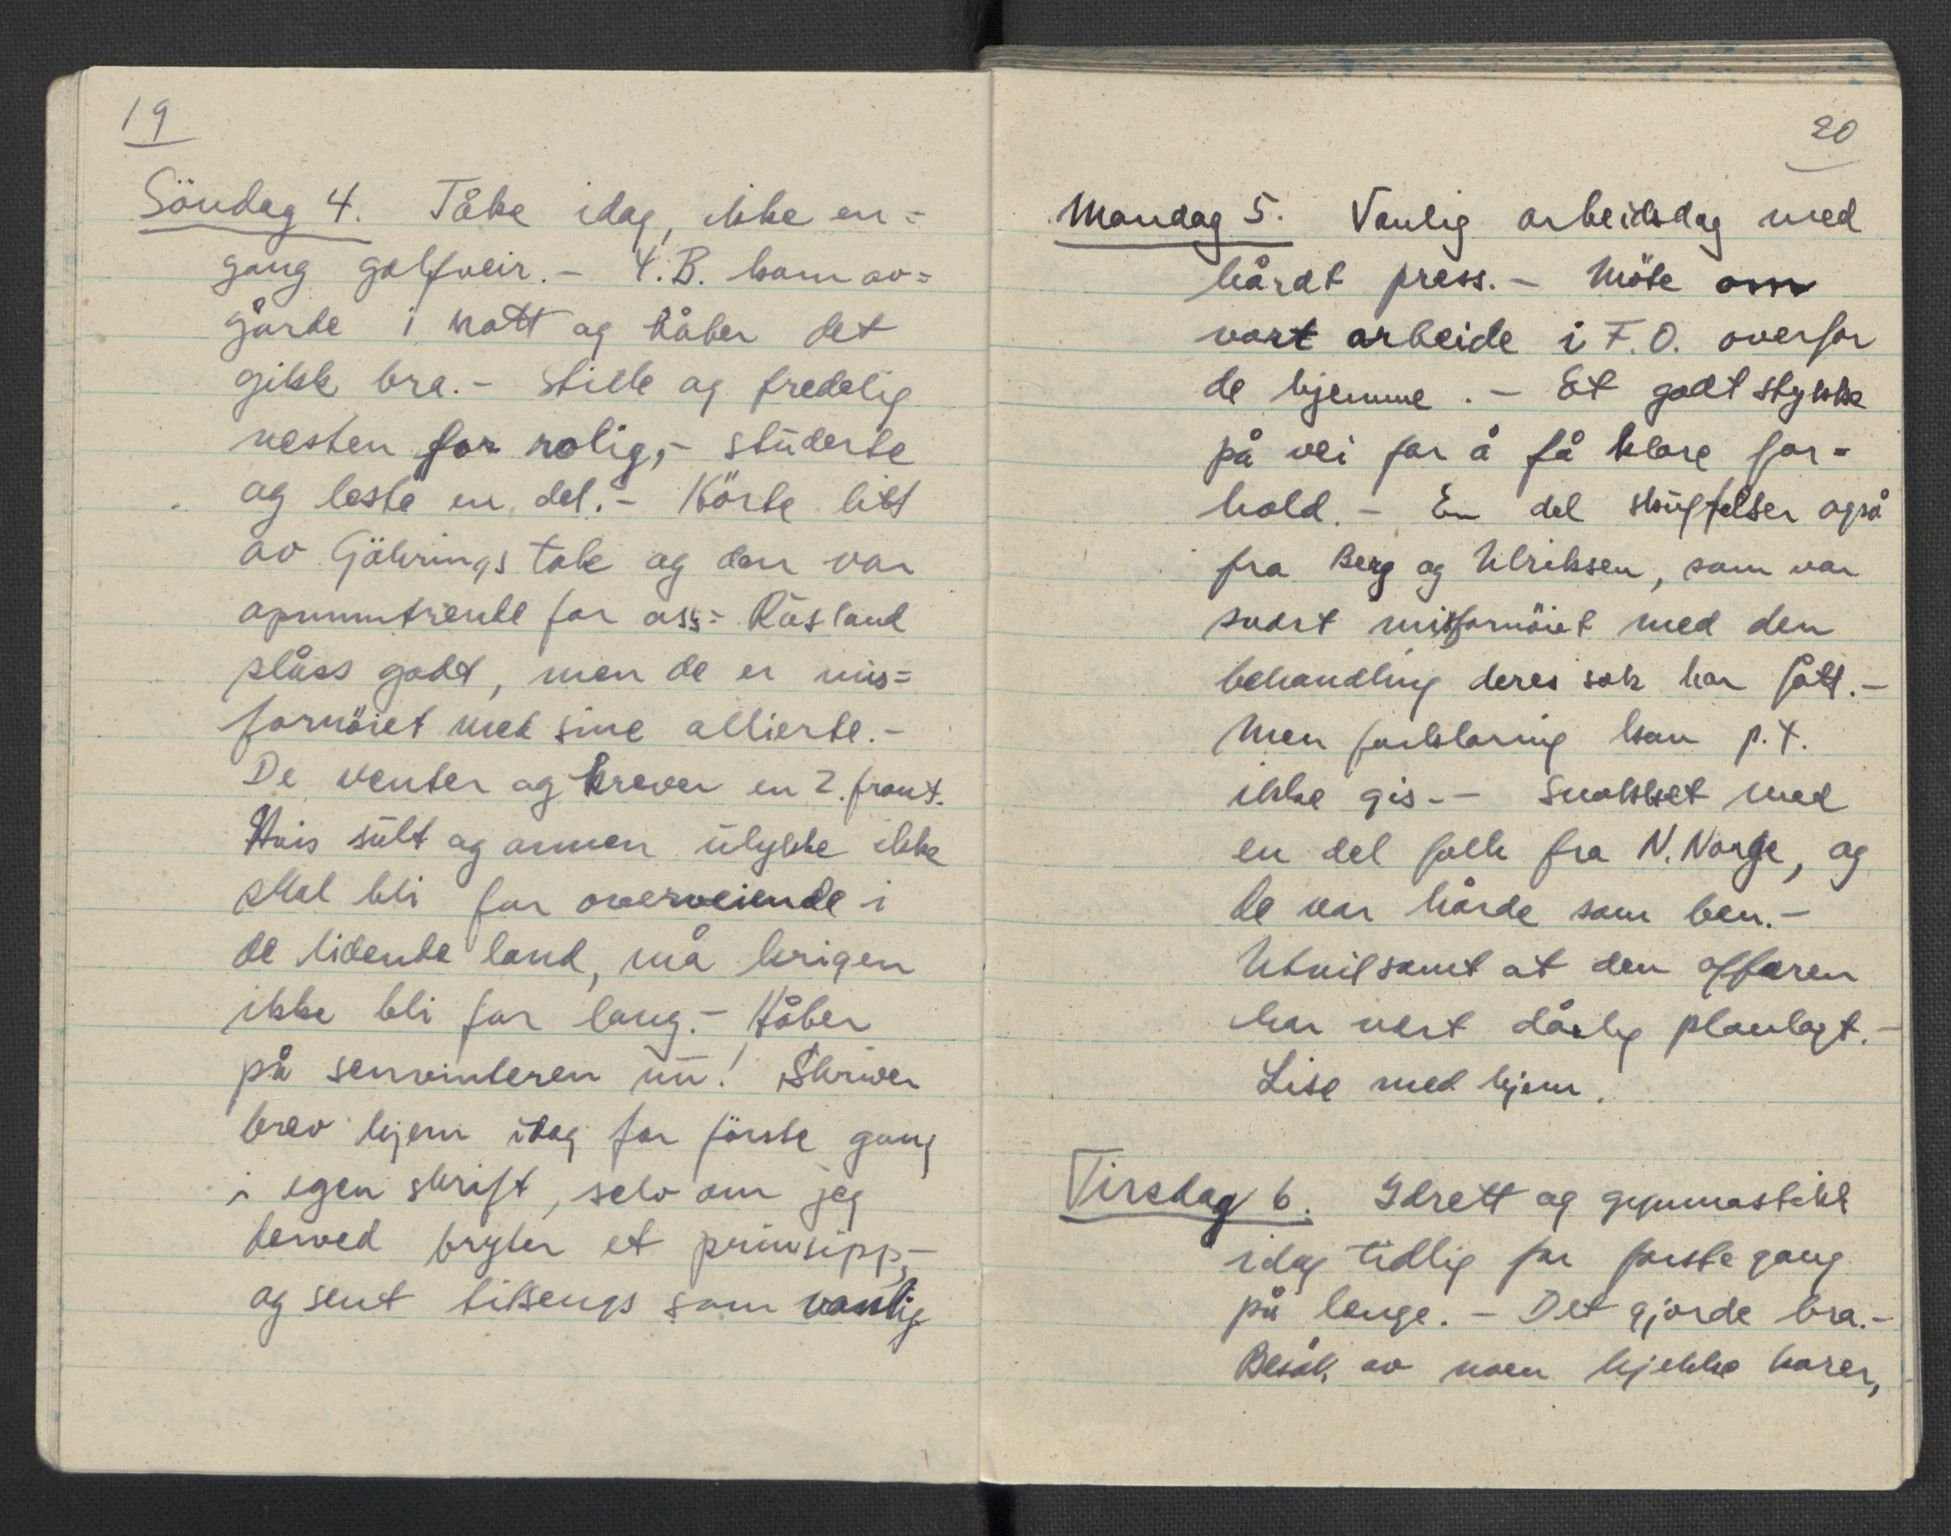 19
Söndag 4. Tåke idag, ikke en=
gang golfveir. - Y.B. kom av=
gårde i natt og håber det
gikk bra. - Stille og fredelig
nesten for rolig, - studerte
og leste en del. - Hörte litt
av Göhrings tale og den var
opmuntrende for oss = Rusland
slåss godt, men de er mis=
fornöiet med sine allierte. -
De venter og krever en 2. front.
Hvis sult og annen ulykke ikke
skal bli for overveiende i
de lidende land, må krigen
ikke bli for lang. - Håber
på senvinteren nu! Skriver
brev hjem idag for förste gang
i egen skrift, selv om jeg
derved bryter et prinsipp, -
og sent tilsengs som vanlig
20
Mandag 5. Vanlig arbeidsdag med
hårdt press. - Möte om
vort arbeide i F.O. overfor
de hjemme. - Et godt stykke
på vei for å få klare for=
hold. - En del skuffelser også
fra Berg og Ulriksen, som var
svært misfornöiet med den
behandling deres sak har fått. -
Men forklaring kan p.t.
ikke gis. - Snakket med
en del folk fra N. Norge, og
de var hårde som ben. -
Utvilsomt at den affæren
har vært dårlig planlagt. -
Lise med hjem.
Tirsdag 6. Idrett og gymnastikk
idag tidlig for förste gang
på lenge. - Det gjorde bra. -
Besök av noen kjekke karer,